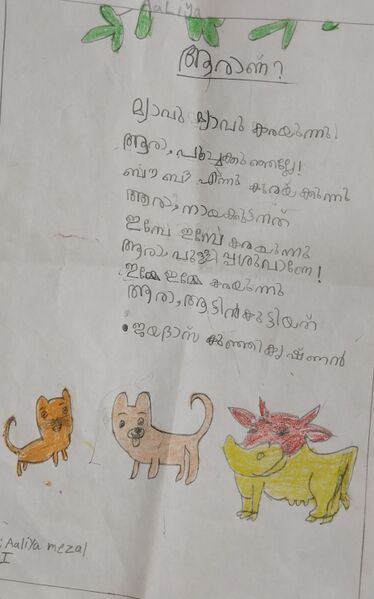 Aaliya
ആരാണ്?
മ്യാവു മ്യാവു കരയുന്നു
ആരാ, പൂച്ചക്കുഞ്ഞല്ലേ!
ബൗ ബൗ എന്നു കുരയ്ക്കുന്നു
ആരാ, നായക്കുട്ടനത്
ഇമ്പേ ഇമ്പേ കരയുന്നു
ആരാ, പുള്ളിപ്പശുവാണേ!
ഇമ്മേ ഇമ്മേ കരയുന്നു
ആരാ, ആടിൻകുട്ടിയത്
• ജയദാസ് കുഞ്ഞികൃഷ്ണൻ
: Aaliya mezal
I